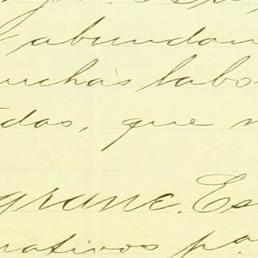 abundan
uchas labo
das, que n
grane. Es
nativos pa